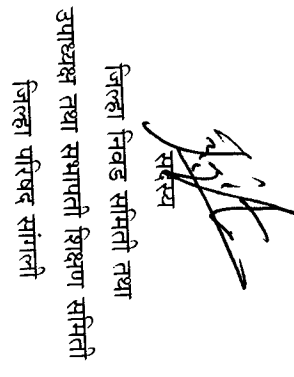 सदस्य
जिल्हा निवड समिती तथा
उपाध्यक्ष तथा सभापती शिक्षण समिती
जिल्हा परिषद सांगली